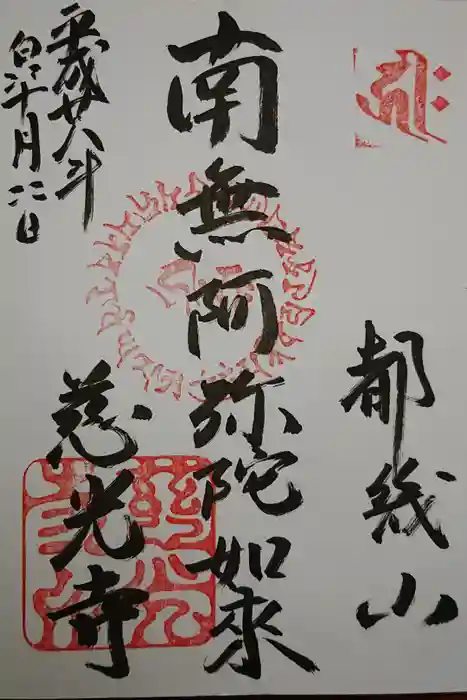 都幾山
南無阿弥陀如来
慈光寺
平成廿八年
十月二日